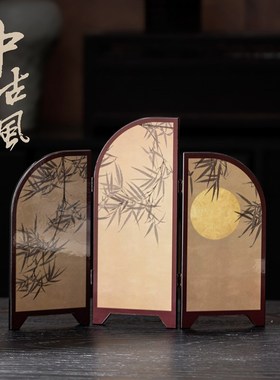 中古風